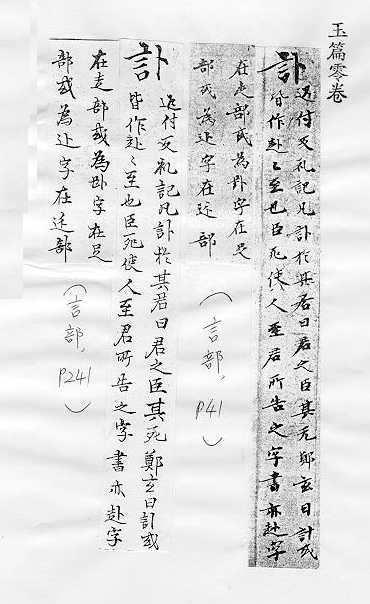 玉篇零卷
訃
付反礼記凡訃於其君曰君之臣其死鄭玄曰訃或
皆作赴〻至也臣死使人至君所告之字書亦赴字
在走部或為字在足
部或為字在部
(言部, P41)
訃
付反礼記凡訃於其君曰君之臣其死鄭玄曰訃或
皆作赴〻至也臣死使人至君所告之字書亦赴字
在走部或為字在足
部或為字在部
(言部, P241)